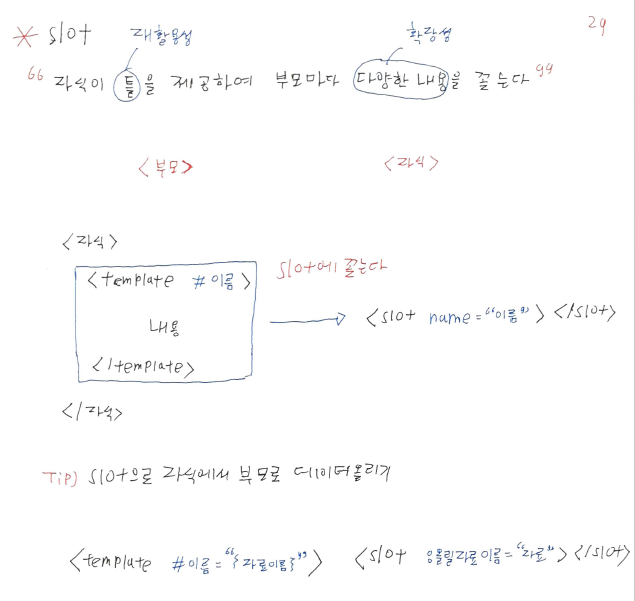 29
* slot
재활용성
확장성
“자식이 틀을 제공하여 부모마다 다양한 내용을 꼽는다”
<부모> <자식>
<자식>
<template #이름>
slot에 꼽는다
내용
<slot name="이름"></slot>
</template>
</자식>
Tip) slot으로 자식에서 부모로 데이터올리기
<template #이름="{자료이름}"> <slot :올릴자료이름="자료"></slot>